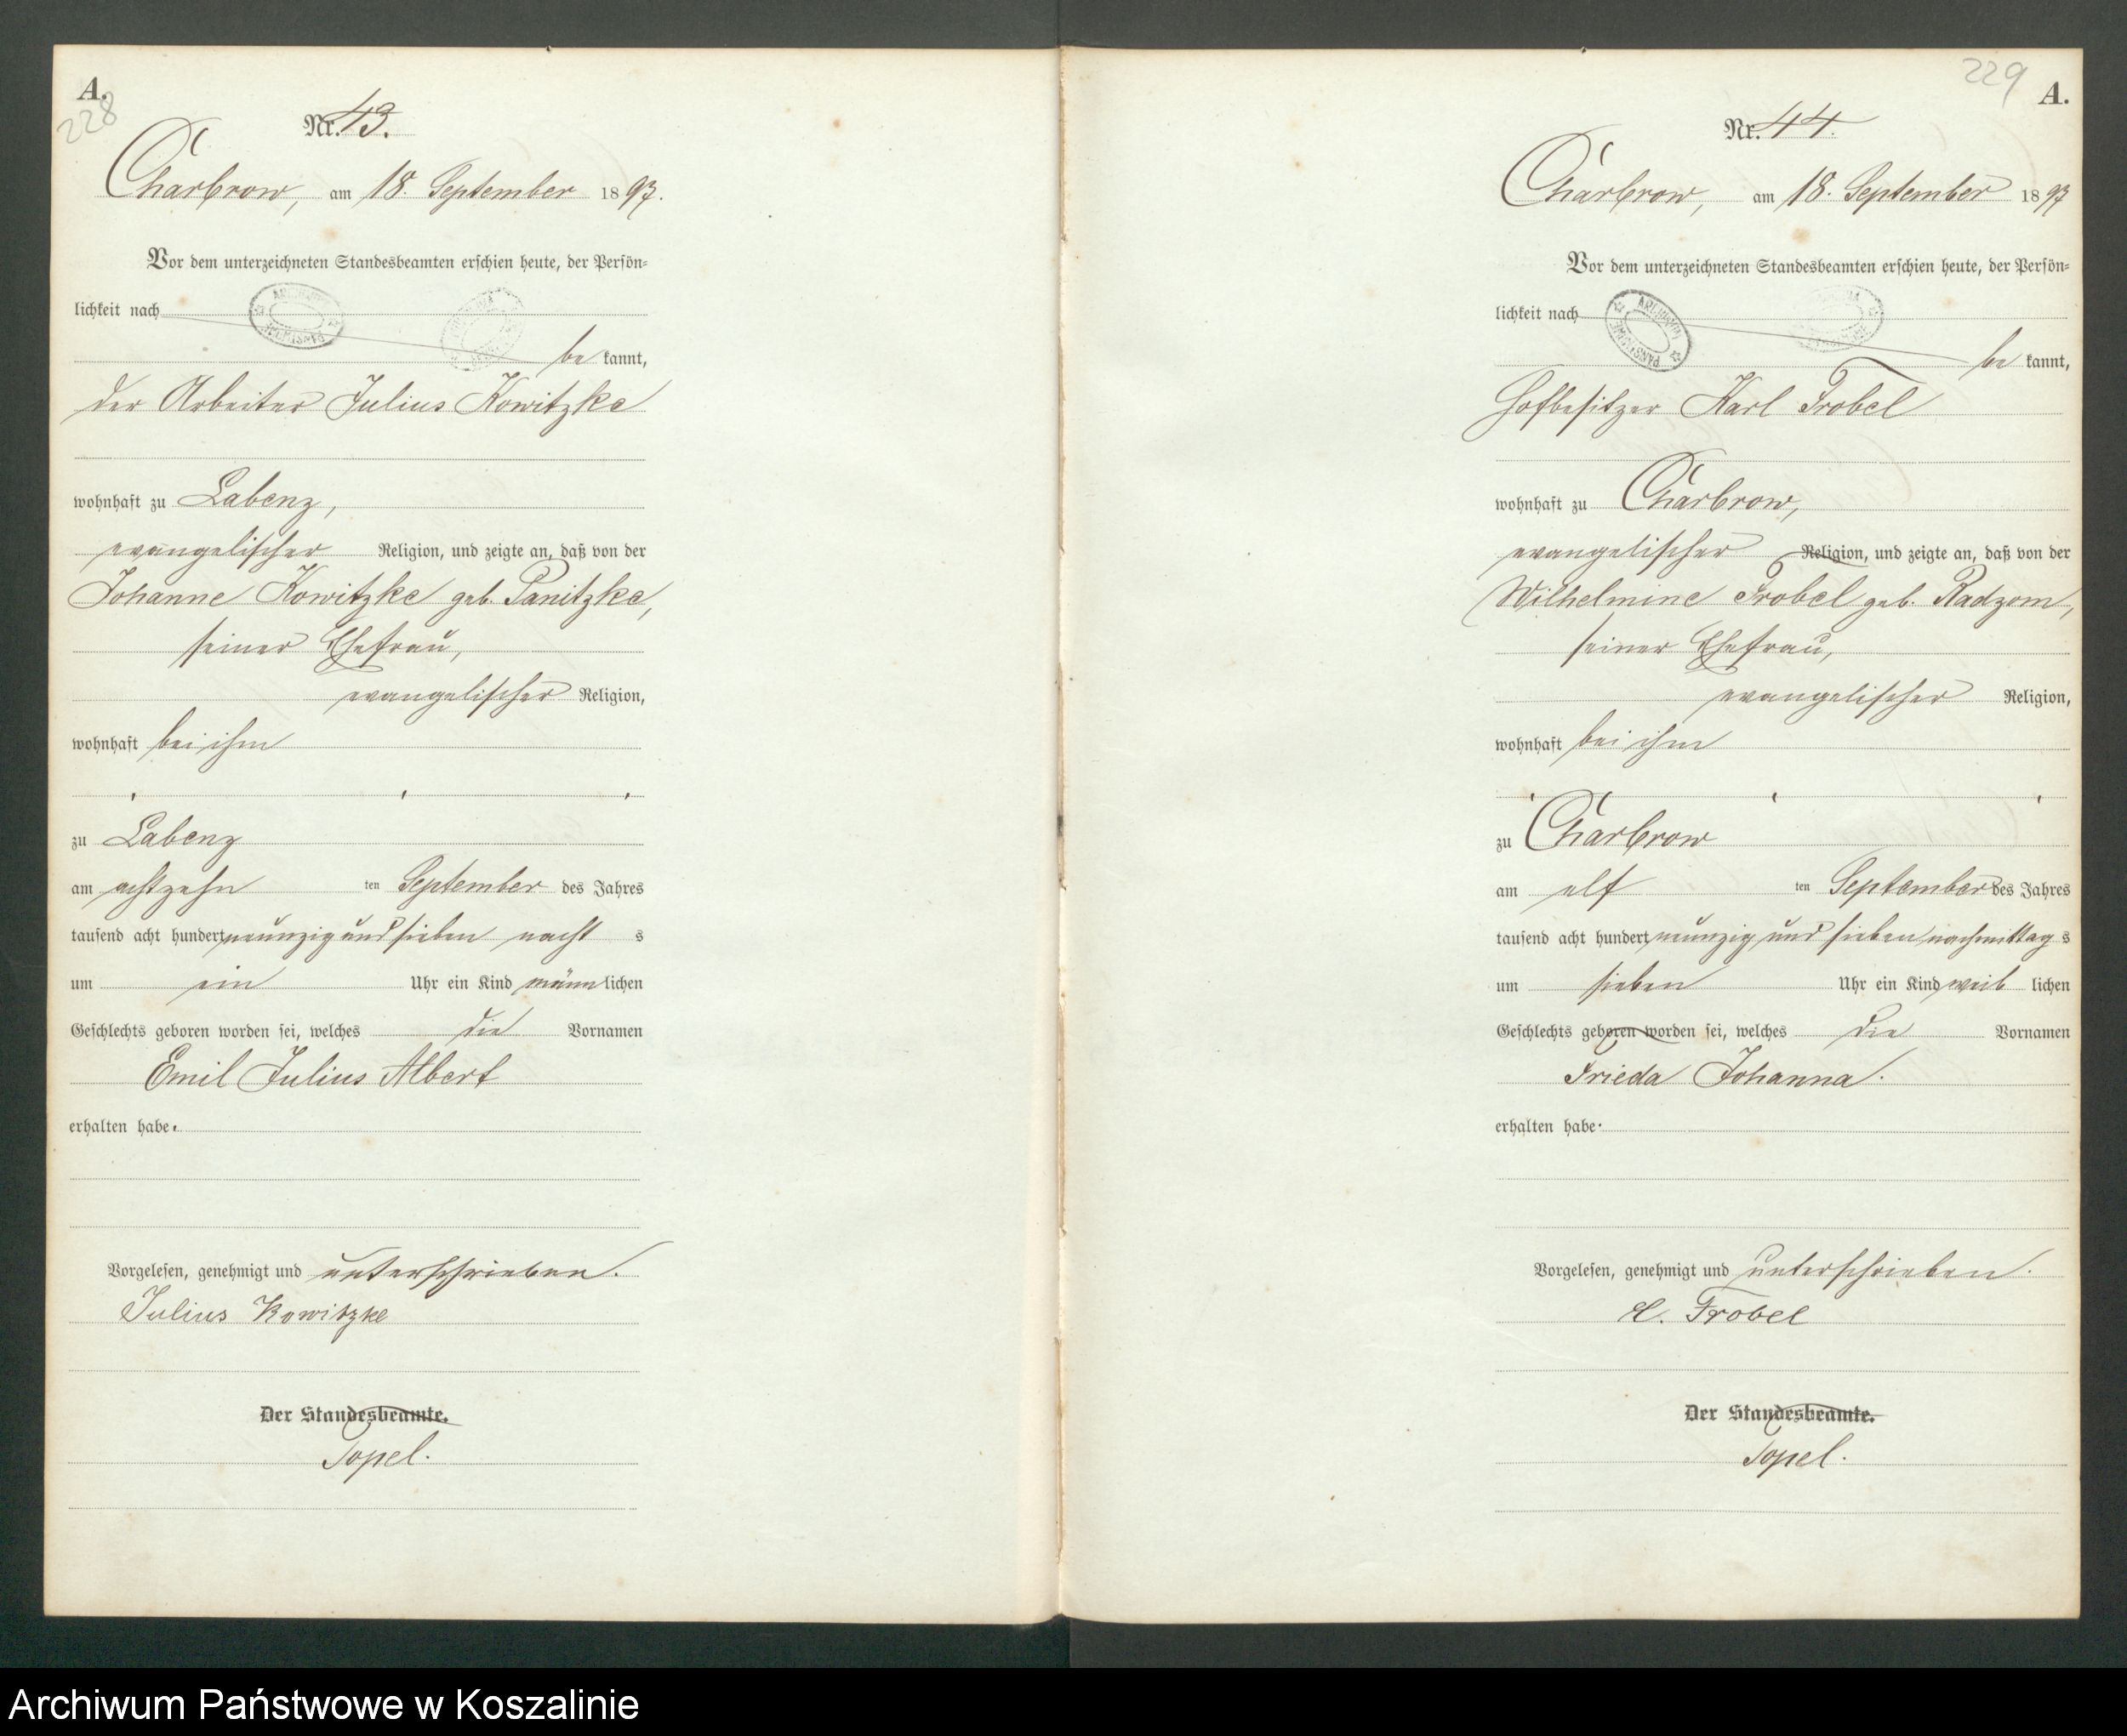 A.
228
Nr. 43.
Charbrow, am 18. September 1897.
Vor dem unterzeichneten Standesbeamten erschien heute, der Persön=
lichkeit nach
be kannt,
der Arbeiter Julius Kowitzke
wohnhaft zu Labenz,
evangelischer Religion, und zeigte an, daß von der
Johanne Kowitzke geb. Panitzke,
seiner Ehefrau,
evangelischer Religion,
wohnhaft bei ihm
zu Labenz
am achtzehn ten September des Jahres
tausend acht hundert neunzig und sieben nacht s
um ein Uhr ein Kind männ lichen
Geschlechts geboren worden sei, welches die Vornamen
Emil Julius Albert
erhalten habe.
Vorgelesen, genehmigt und unterschrieben.
Julius Kowitzke
Der Standesbeamte.
Topel.
229
A.
Nr. 44.
Charbrow, am 18. September 1897
Vor dem unterzeichneten Standesbeamten erschien heute, der Persön=
lichkeit nach
be kannt,
Hofbesitzer Karl Frobel
wohnhaft zu Charbrow,
evangelischer Religion, und zeigte an, daß von der
Wilhelmine Frobel geb. Radzom,
seiner Ehefrau,
evangelischer Religion,
wohnhaft bei ihm
zu Charbrow
am elf ten September des Jahres
tausend acht hundert neunzig und sieben nachmittag s
um sieben Uhr ein Kind weib lichen
Geschlechts geboren worden sei, welches die Vornamen
Frieda Johanna.
erhalten habe.
Vorgelesen, genehmigt und unterschrieben.
C. Frobel
Der Standesbeamte.
Topel.
Archiwum Państwowe w Koszalinie